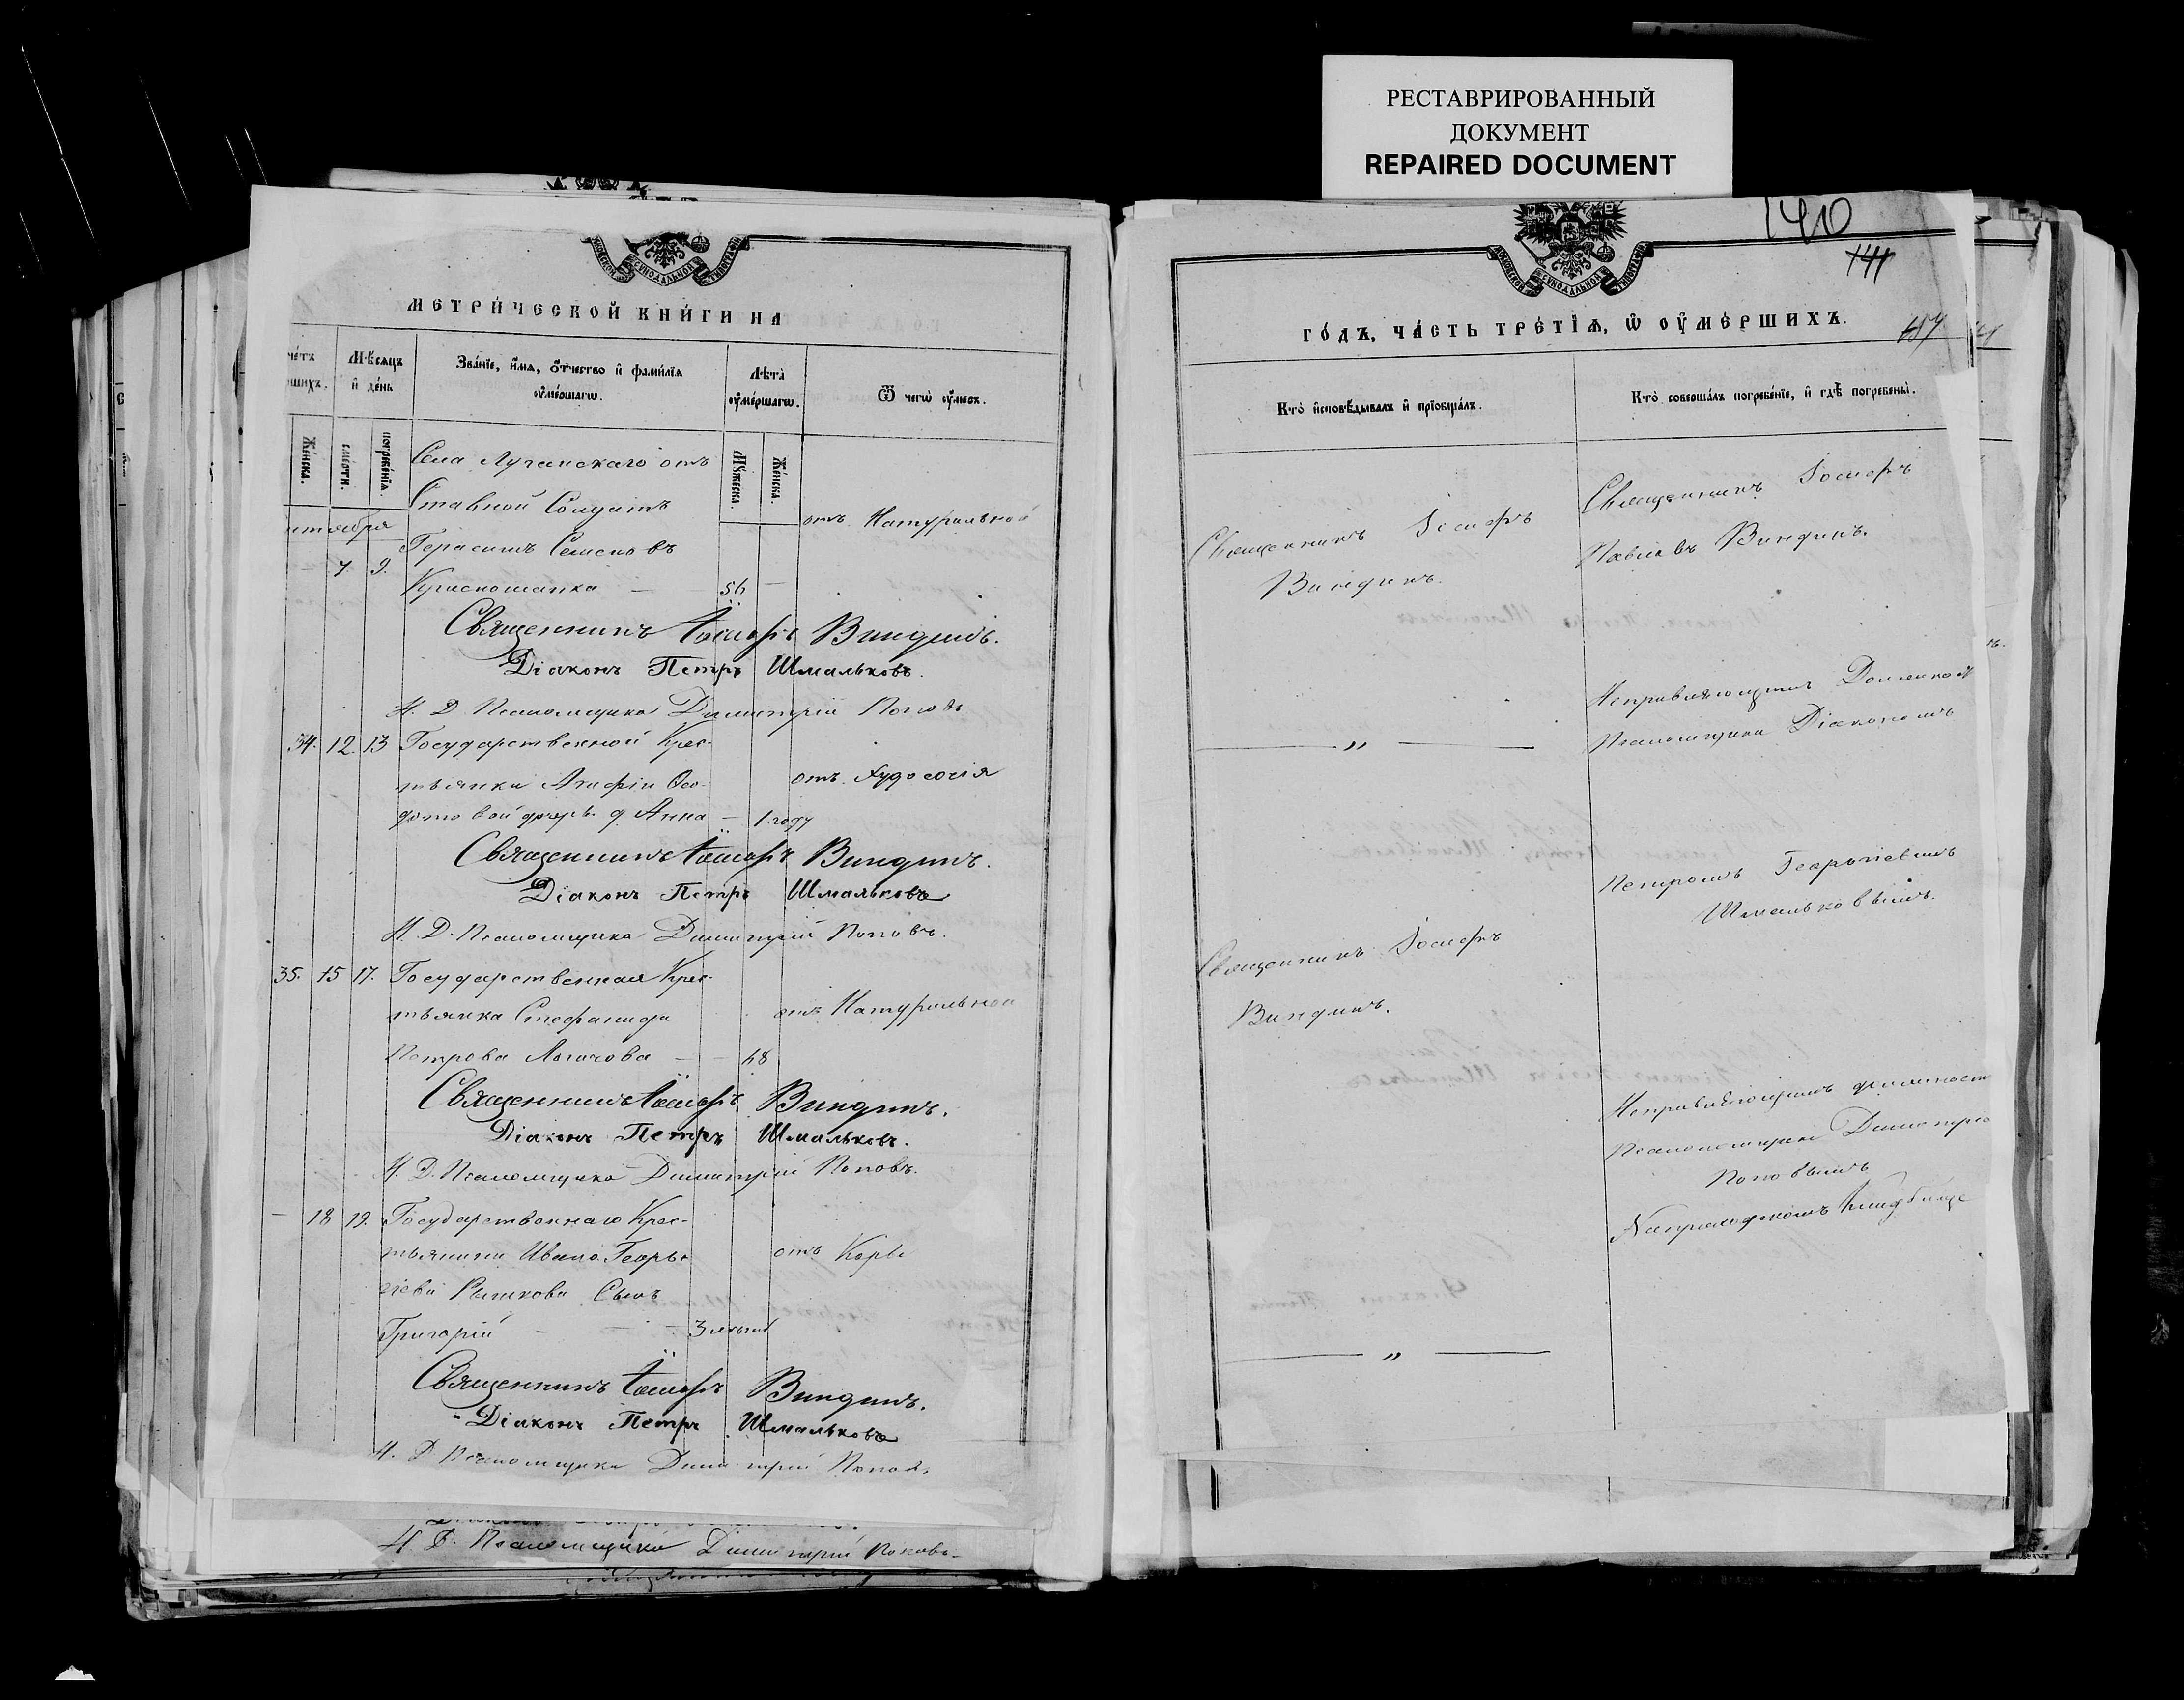 РЕСТАВРИРОВАННЫЙ
ДОКУМЕНТ
REPAIRED DOCUMENT
140
141
МЕТРИЧЕСКОЙ КНИГИ НА
Мѣсяцъ и день
Званіе, имя, отчество и фамилія умершагѡ.
Лѣта умершагѡ.
Ѿ чегѡ умеръ.
Женска.
смерти.
погребенія.
Мꙋжеска.
Женска.
Села Луганскаго от
ставной Солдатъ
7 9. Герасимъ Семеновъ
56
отъ Натуральной
Священникъ Іосифъ Виндинъ.
Діаконъ Петръ Шмальковъ.
И. Д. Псаломщика Димитрій Поповъ
34. 12. 13 Государственной Крес-
тьянки Агафіи Ѳео-
дотовой дочерь д Анна — 1 году
отъ Худосочія
Священникъ Іосифъ Виндинъ.
Діаконъ Петръ Шмальковъ
И. Д. Псаломщика Димитрій Поповъ.
35. 15 17. Государственная Крес-
тьянка Стефанида
Петрова — 68
отъ Натуральной
Священникъ Іосифъ Виндинъ.
Діаконъ Петръ Шмальковъ.
И. Д. Псаломщика Димитрій Поповъ.
— 18 19. Государственнаго Крес-
тьянина Ивана Георь-
гіева Рыжкова Сынъ
Григорій — — — 3 лѣтъ
отъ Кори
Священникъ Іосифъ Виндинъ.
Діаконъ Петръ Шмальковъ
И. Д. Псаломщика Димитрій Поповъ
И. Д. Псаломщика Димитрій Поповъ
ГОДЪ, ЧАСТЬ ТРЕТІѦ, Ѡ ОУМЕРШИХЪ.
Кто исповѣдывалъ и прїобщалъ.
Кто совершалъ погребеніе, и гдѣ погребены.
Священникъ Іосифъ
Виндинъ.
Священникъ Іосифъ
Павловъ Виндинъ.
— „ —
Исправляющимъ Должност
Псаломщика Діакономъ
Петромъ Георгіевымъ
Шмальковымъ.
Священникъ Іосифъ
Виндинъ.
Исправляющимъ должност
Псаломщика Димитріе
Поповымъ
На приходскомъ Кладбище
— „ —